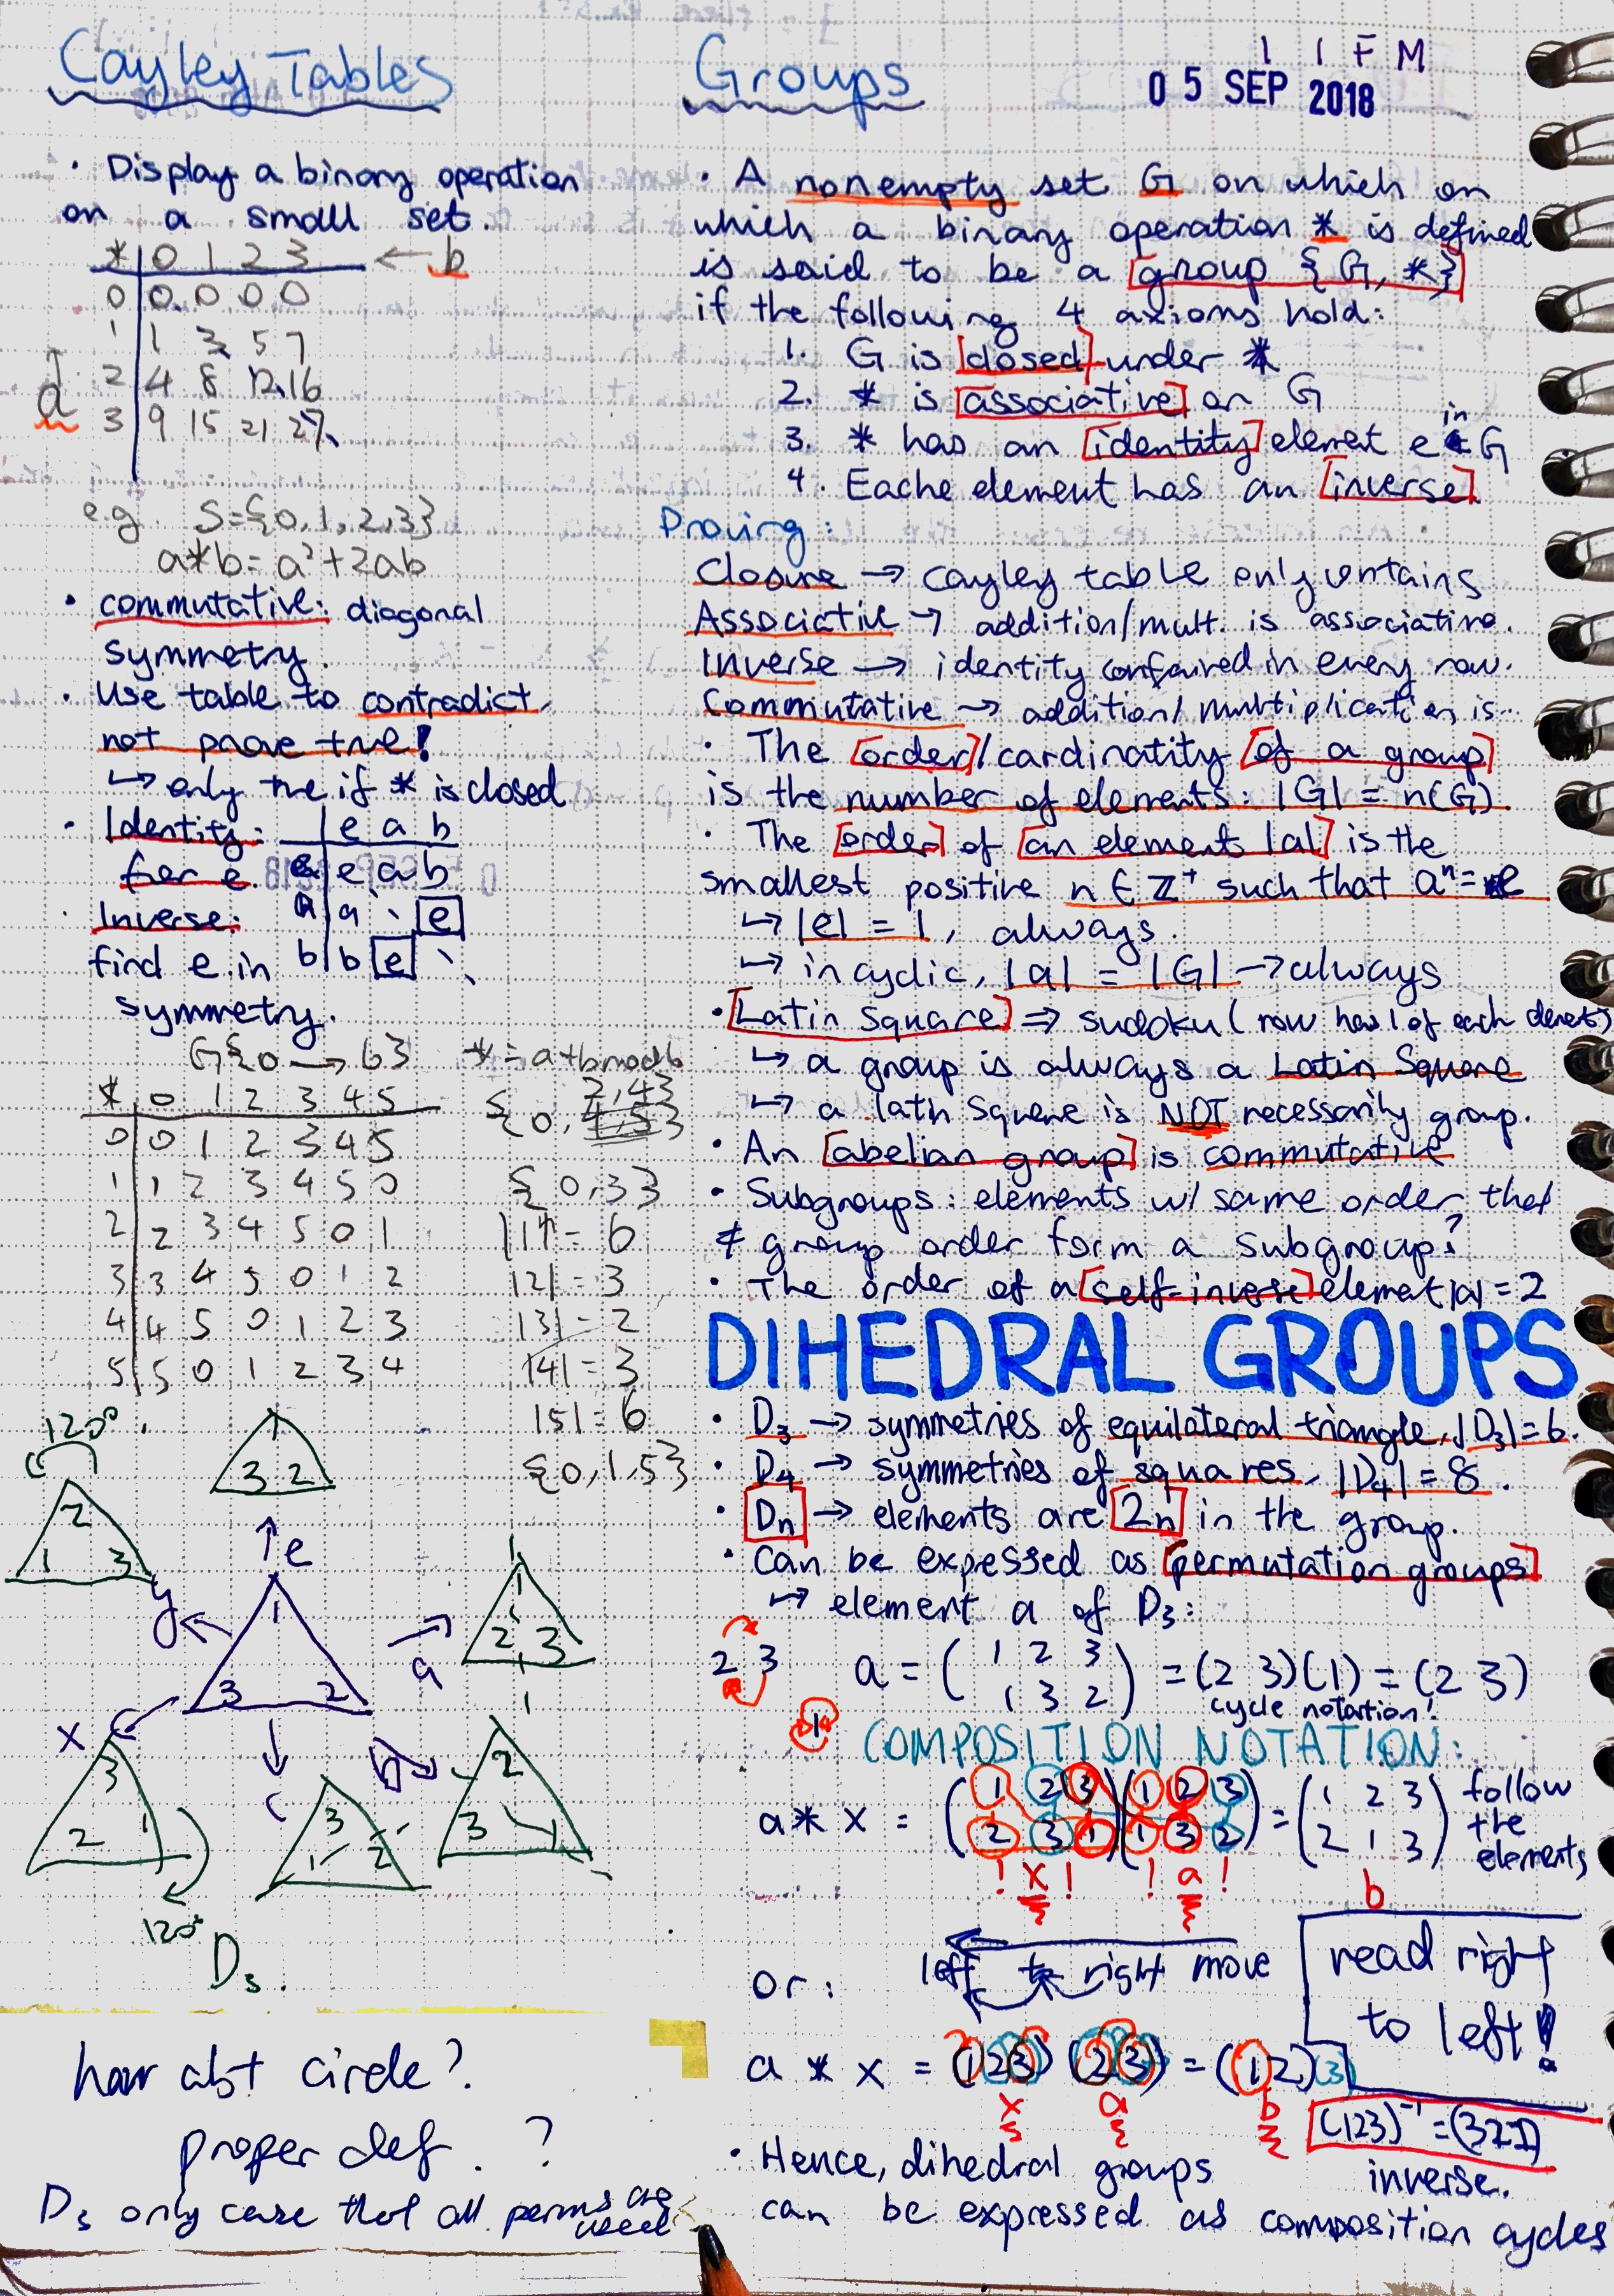 Cayley Tables
• Display a binary operation
on a small set.
* 0 1 2 3 ← b
0 0 0 0 0
1 1 3 5 7
a 2 4 8 12 16
3 9 15 21 27
e.g. S={0,1,2,3}
a*b = a²+2ab
• commutative: diagonal
symmetry.
• Use table to contradict,
not prove true!
↳ only true if * is closed
• Identity:
for e.
• Inverse:
find e in
symmetry.
e a b
e e a b
a a e
b b e
G{0 → 6} * = a+b mod 6
* 0 1 2 3 4 5
0 0 1 2 3 4 5
1 1 2 3 4 5 0
2 2 3 4 5 0 1
3 3 4 5 0 1 2
4 4 5 0 1 2 3
5 5 0 1 2 3 4
{0, 2,4}
{0,3}
|1| = 6
|2| = 3
|3| = 2
|4| = 3
|5| = 6
{0,1,5}
120°
2
1 3
1
3 2
e
y
1
3 2
a
1
2 3
x
3
2 1
120°
c
3
1 2
b
2
3 1
D₃.
how abt circle?
proper def. ?
D₃ only case that all perms are
used
Groups
1 1 F M
05 SEP 2018
• A nonempty set G on which on
which a binary operation * is defined
is said to be a group {G, *}
if the following 4 axioms hold:
1. G is closed under *
2. * is associative on G
3. * has an identity element e in G
4. Eache element has an inverse
Proving:
Closure → cayley table only contains
Associative → addition/mult. is associative.
Inverse → identity contained in every row.
Commutative → addition/multiplication is..
• The order/cardinatity of a group
is the number of elements: |G| = n(G).
• The order of an element |a| is the
smallest positive n ∈ ℤ⁺ such that aⁿ = e
↳ |e| = 1, always.
↳ in cyclic, |a| = |G| → always
• Latin Square ⇒ sudoku (row has 1 of each element)
↳ a group is always a Latin Square
↳ a latin Square is NOT necessarily group.
• An abelian group is commutative
• Subgroups: elements w/ same order that
≠ group order form a subgroup?
• The order of a self-inverse element |a| = 2
DIHEDRAL GROUPS
• D₃ → symmetries of equilateral triangle, |D₃| = 6.
• D₄ → symmetries of squares, |D₄| = 8.
• Dn → elements are 2n in the group.
• Can be expressed as permutation groups
↳ element a of D₃:
2 3
1
a = ( 1 2 3 ) = (2 3)(1) = (2 3)
1 3 2
cycle notation!
COMPOSITION NOTATION:
a * x = (1 2 3)(1 2 3) = (1 2 3) follow
2 3 1 1 3 2 2 1 3 the
elements
! x ! ! a ! b
or: left to right move
read right
to left!
a * x = (1 2 3) (2 3) = (1 2)(3)
x a b
(123)⁻¹ = (321)
inverse.
• Hence, dihedral groups
can be expressed as composition cycles